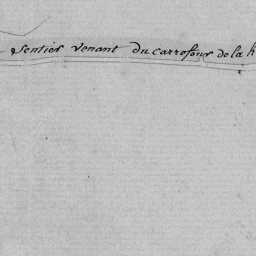 Sentier venant du carrefour de la